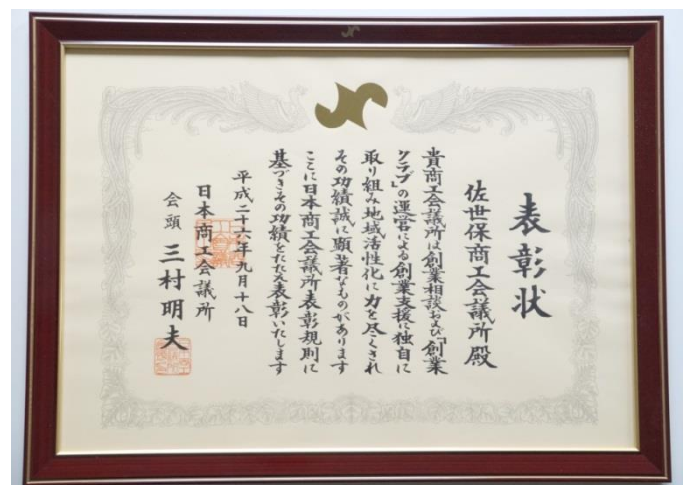 表彰状
佐世保商工会議所殿
貴商工会議所は創業相談および「創業
クラブ」の運営による創業支援に独自に
取り組み地域活性化に力を尽くされ
その功績誠に顕著なものがあります
ここに日本商工会議所表彰規則に
基づきその功績をたたえ表彰いたします
平成二十六年九月十八日
日本商工会議所
会頭 三村明夫